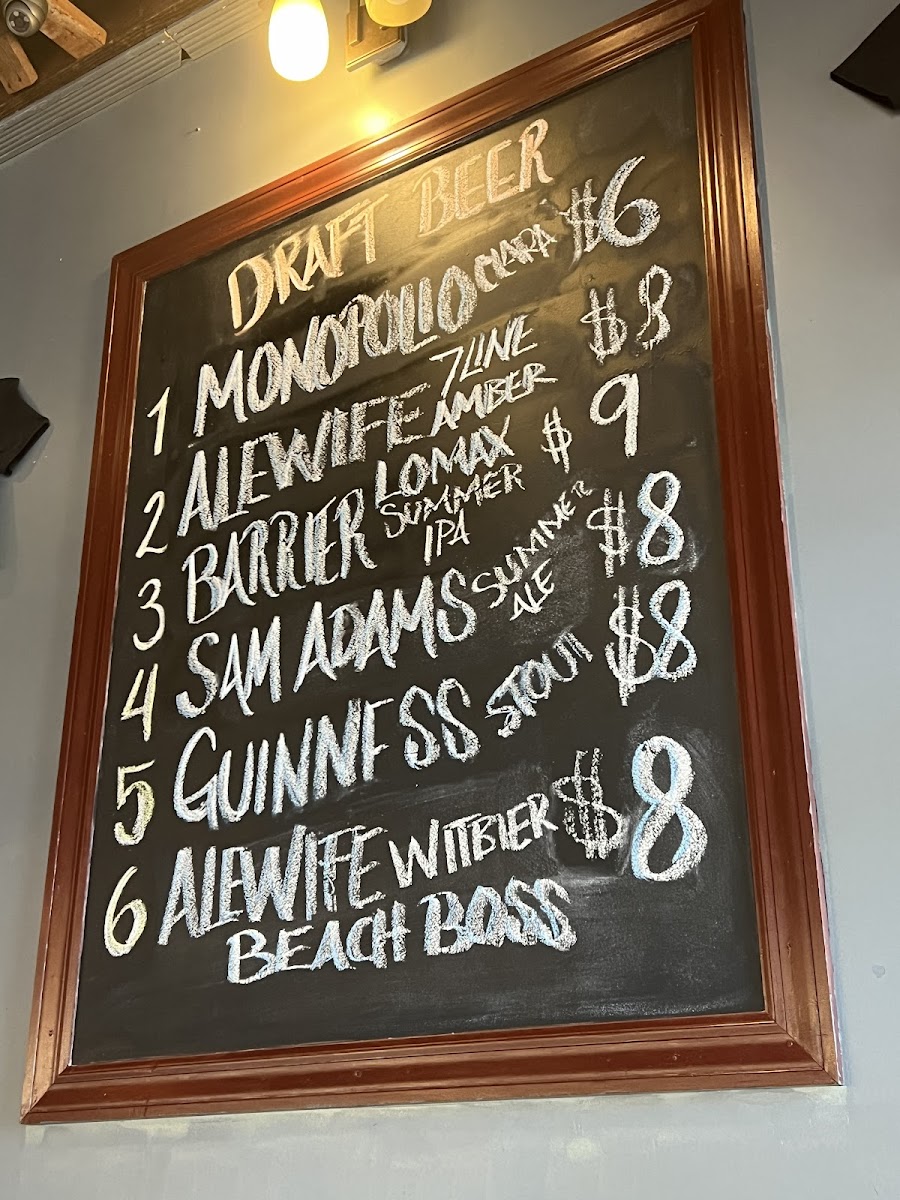 DRAFT BEER
1 MONOPOLIO CLARA $6
2 ALEWIFE 7LINE AMBER $8
3 BARRIER LOMAX SUMMER IPA $9
4 SAM ADAMS SUMMER ALE $8
5 GUINNESS STOUT $8
6 ALEWIFE WITBIER $8
BEACH BOSS